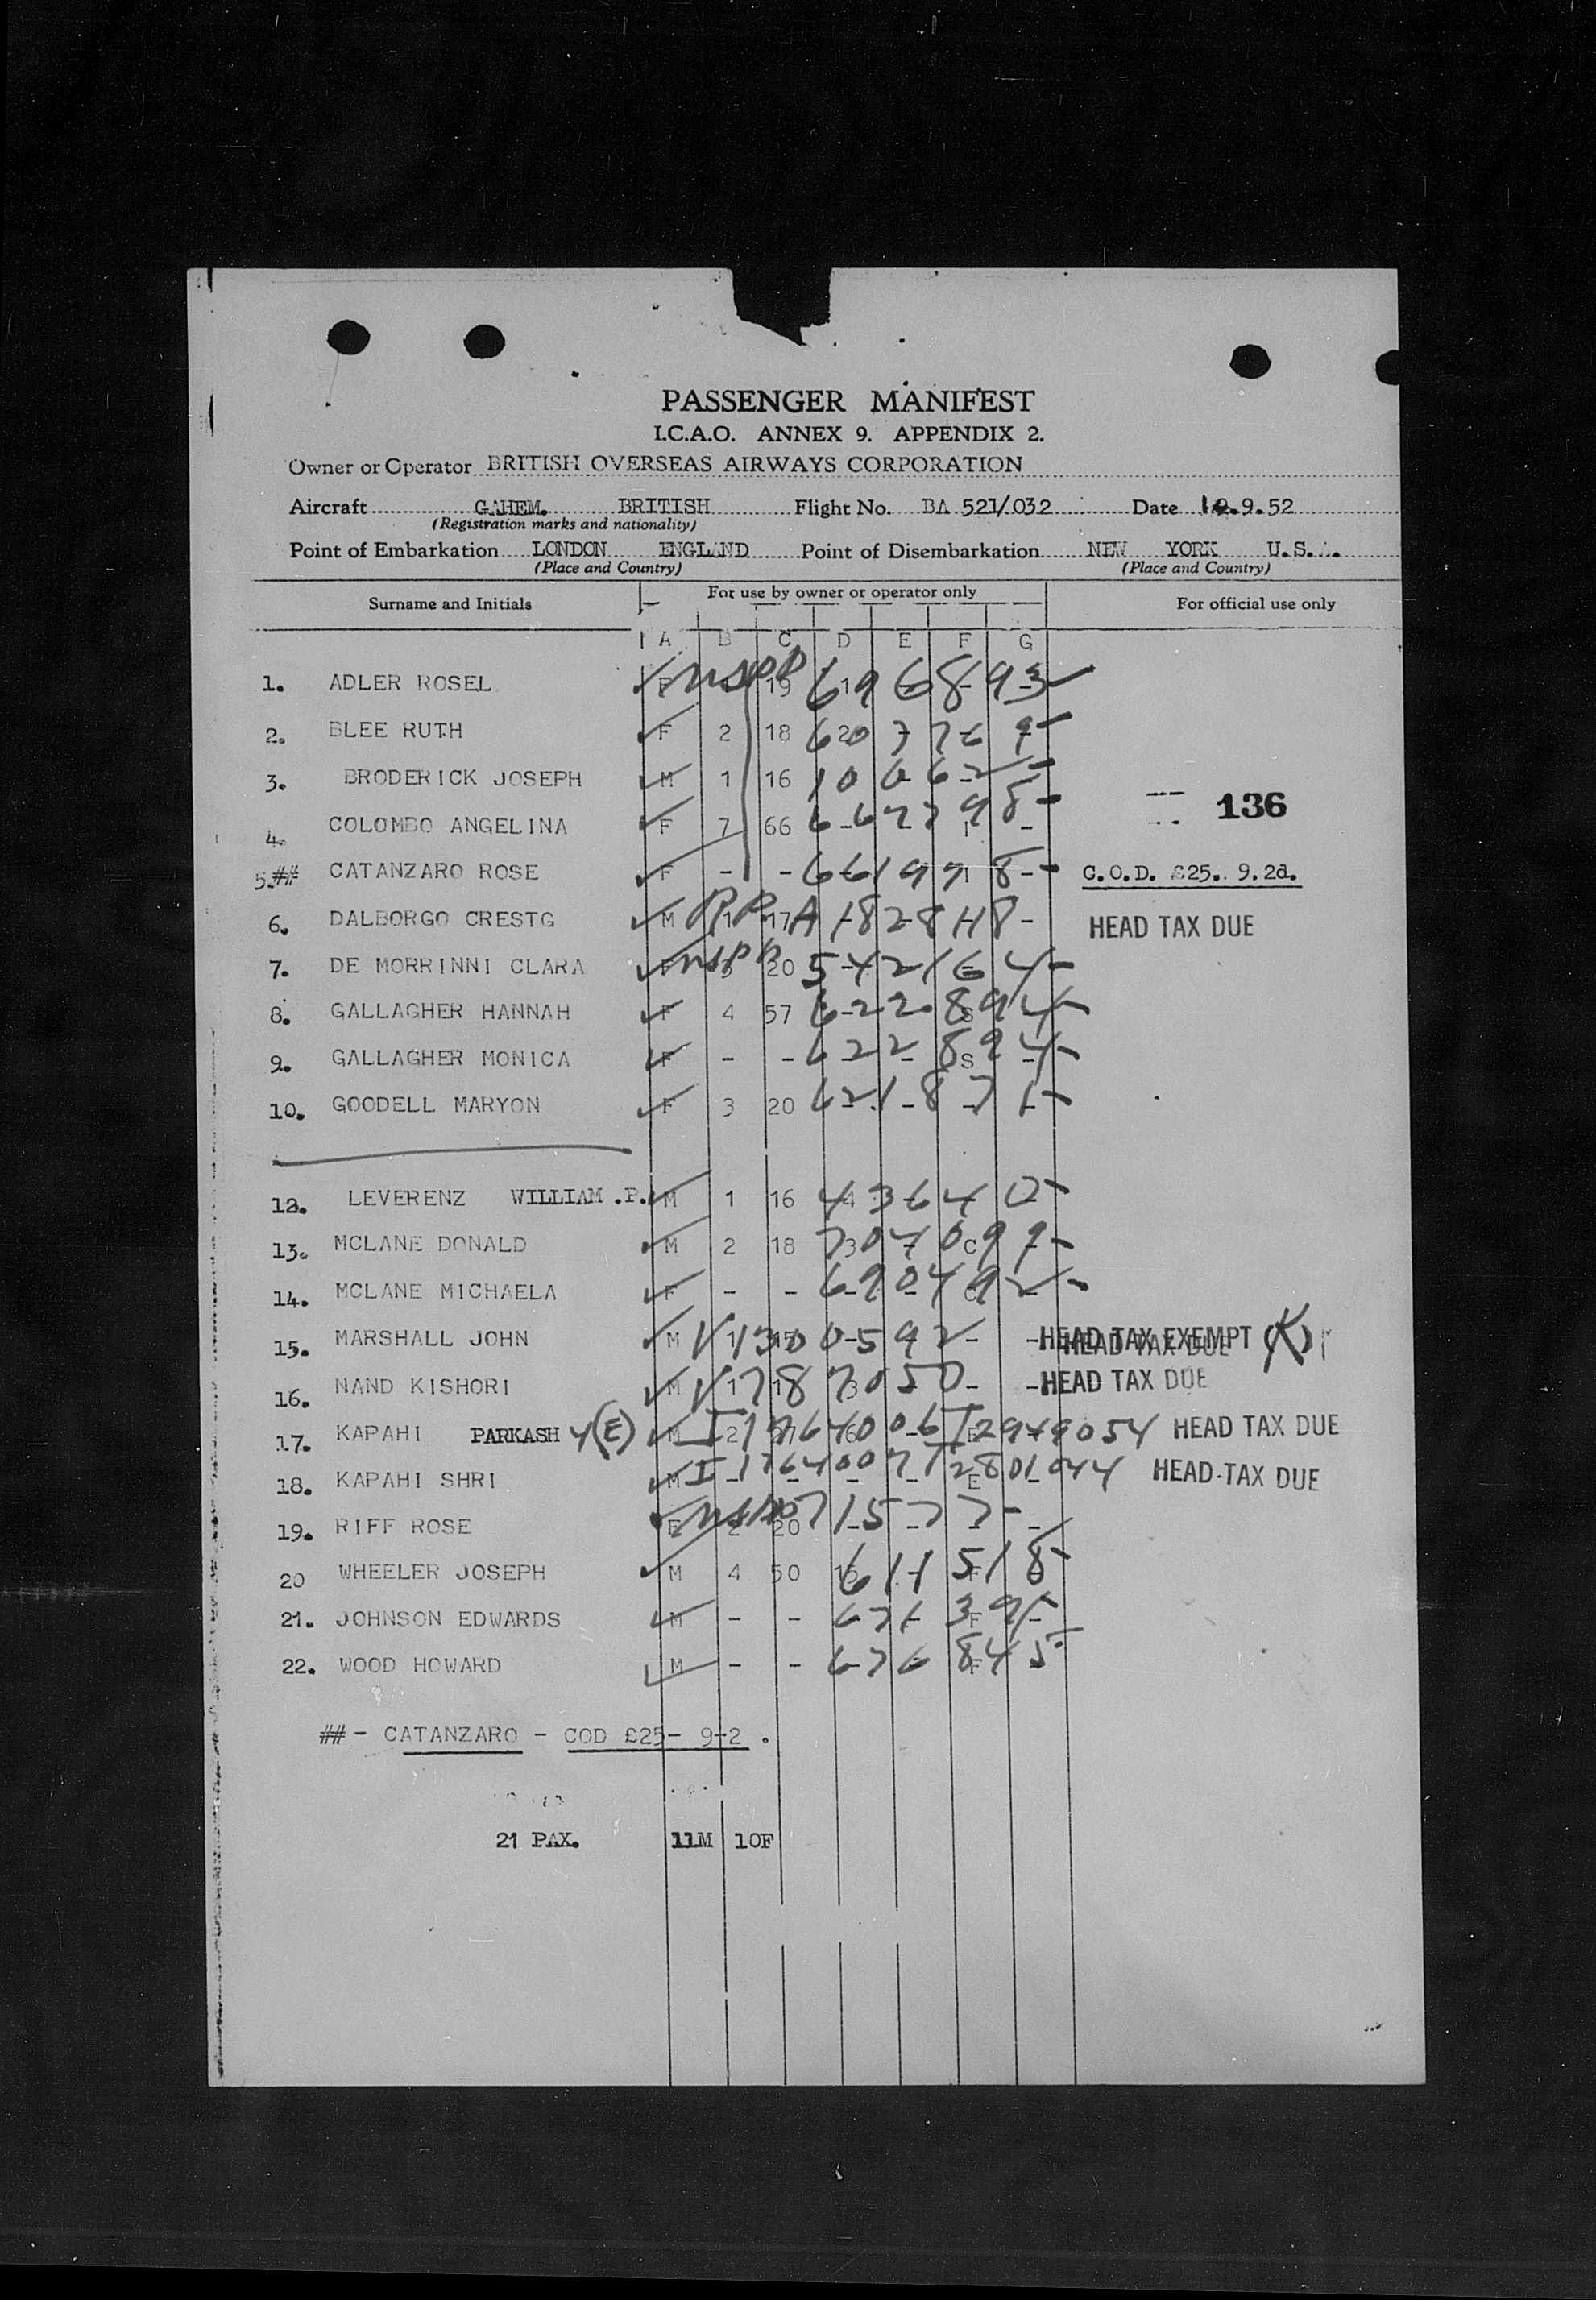 PASSENGER MANIFEST
I.C.A.O. ANNEX 9. APPENDIX 2.
Owner or Operator BRITISH OVERSEAS AIRWAYS CORPORATION
Aircraft GAHEM. BRITISH Flight No. BA 521/032 Date .9.52
(Registration marks and nationality)
Point of Embarkation LONDON ENGLAND Point of Disembarkation NEW YORK U.S.
(Place and Country) (Place and Country)
Surname and Initials For use by owner or operator only For official use only
A B C D E F G
1. ADLER ROSEL F 19 1 696893
2. BLEE RUTH F 2 18 2 607769
3. BRODERICK JOSEPH M 1 16 10062
136
4. COLOMBO ANGELINA F 7 66 - - I - 667798
5.## CATANZARO ROSE F - - 661998 C.O.D. £25. 9.2d.
6. DALBORGO CRESTG M 1 17 HEAD TAX DUE
7. DE MORRINNI CLARA F 20 542164
8. GALLAGHER HANNAH F 4 57 622894
9. GALLAGHER MONICA F - - S 622894
10. GOODELL MARYON F 3 20 621871
12. LEVERENZ WILLIAM .P. M 1 16 4 43640
13. MCLANE DONALD M 2 18 3 - C - 704099
14. MCLANE MICHAELA F - - - - C - 690492
15. MARSHALL JOHN M V1300592 - - HEAD TAX EXEMPT (K)
HEAD TAX DUE
16. NAND KISHORI M V787050 - - HEAD TAX DUE
17. KAPAHI PARKASH 4(E) M 2 6 - E I2949054 HEAD TAX DUE
18. KAPAHI SHRI M - - - - E - HEAD TAX DUE
19. RIFF ROSE F 2 20 - - - - 71577
20 WHEELER JOSEPH M 4 50 611518
21. JOHNSON EDWARDS M - - F - 671395
22. WOOD HOWARD M - - F 676845
## - CATANZARO - COD £25- 9-2 .
21 PAX. 11M 10F